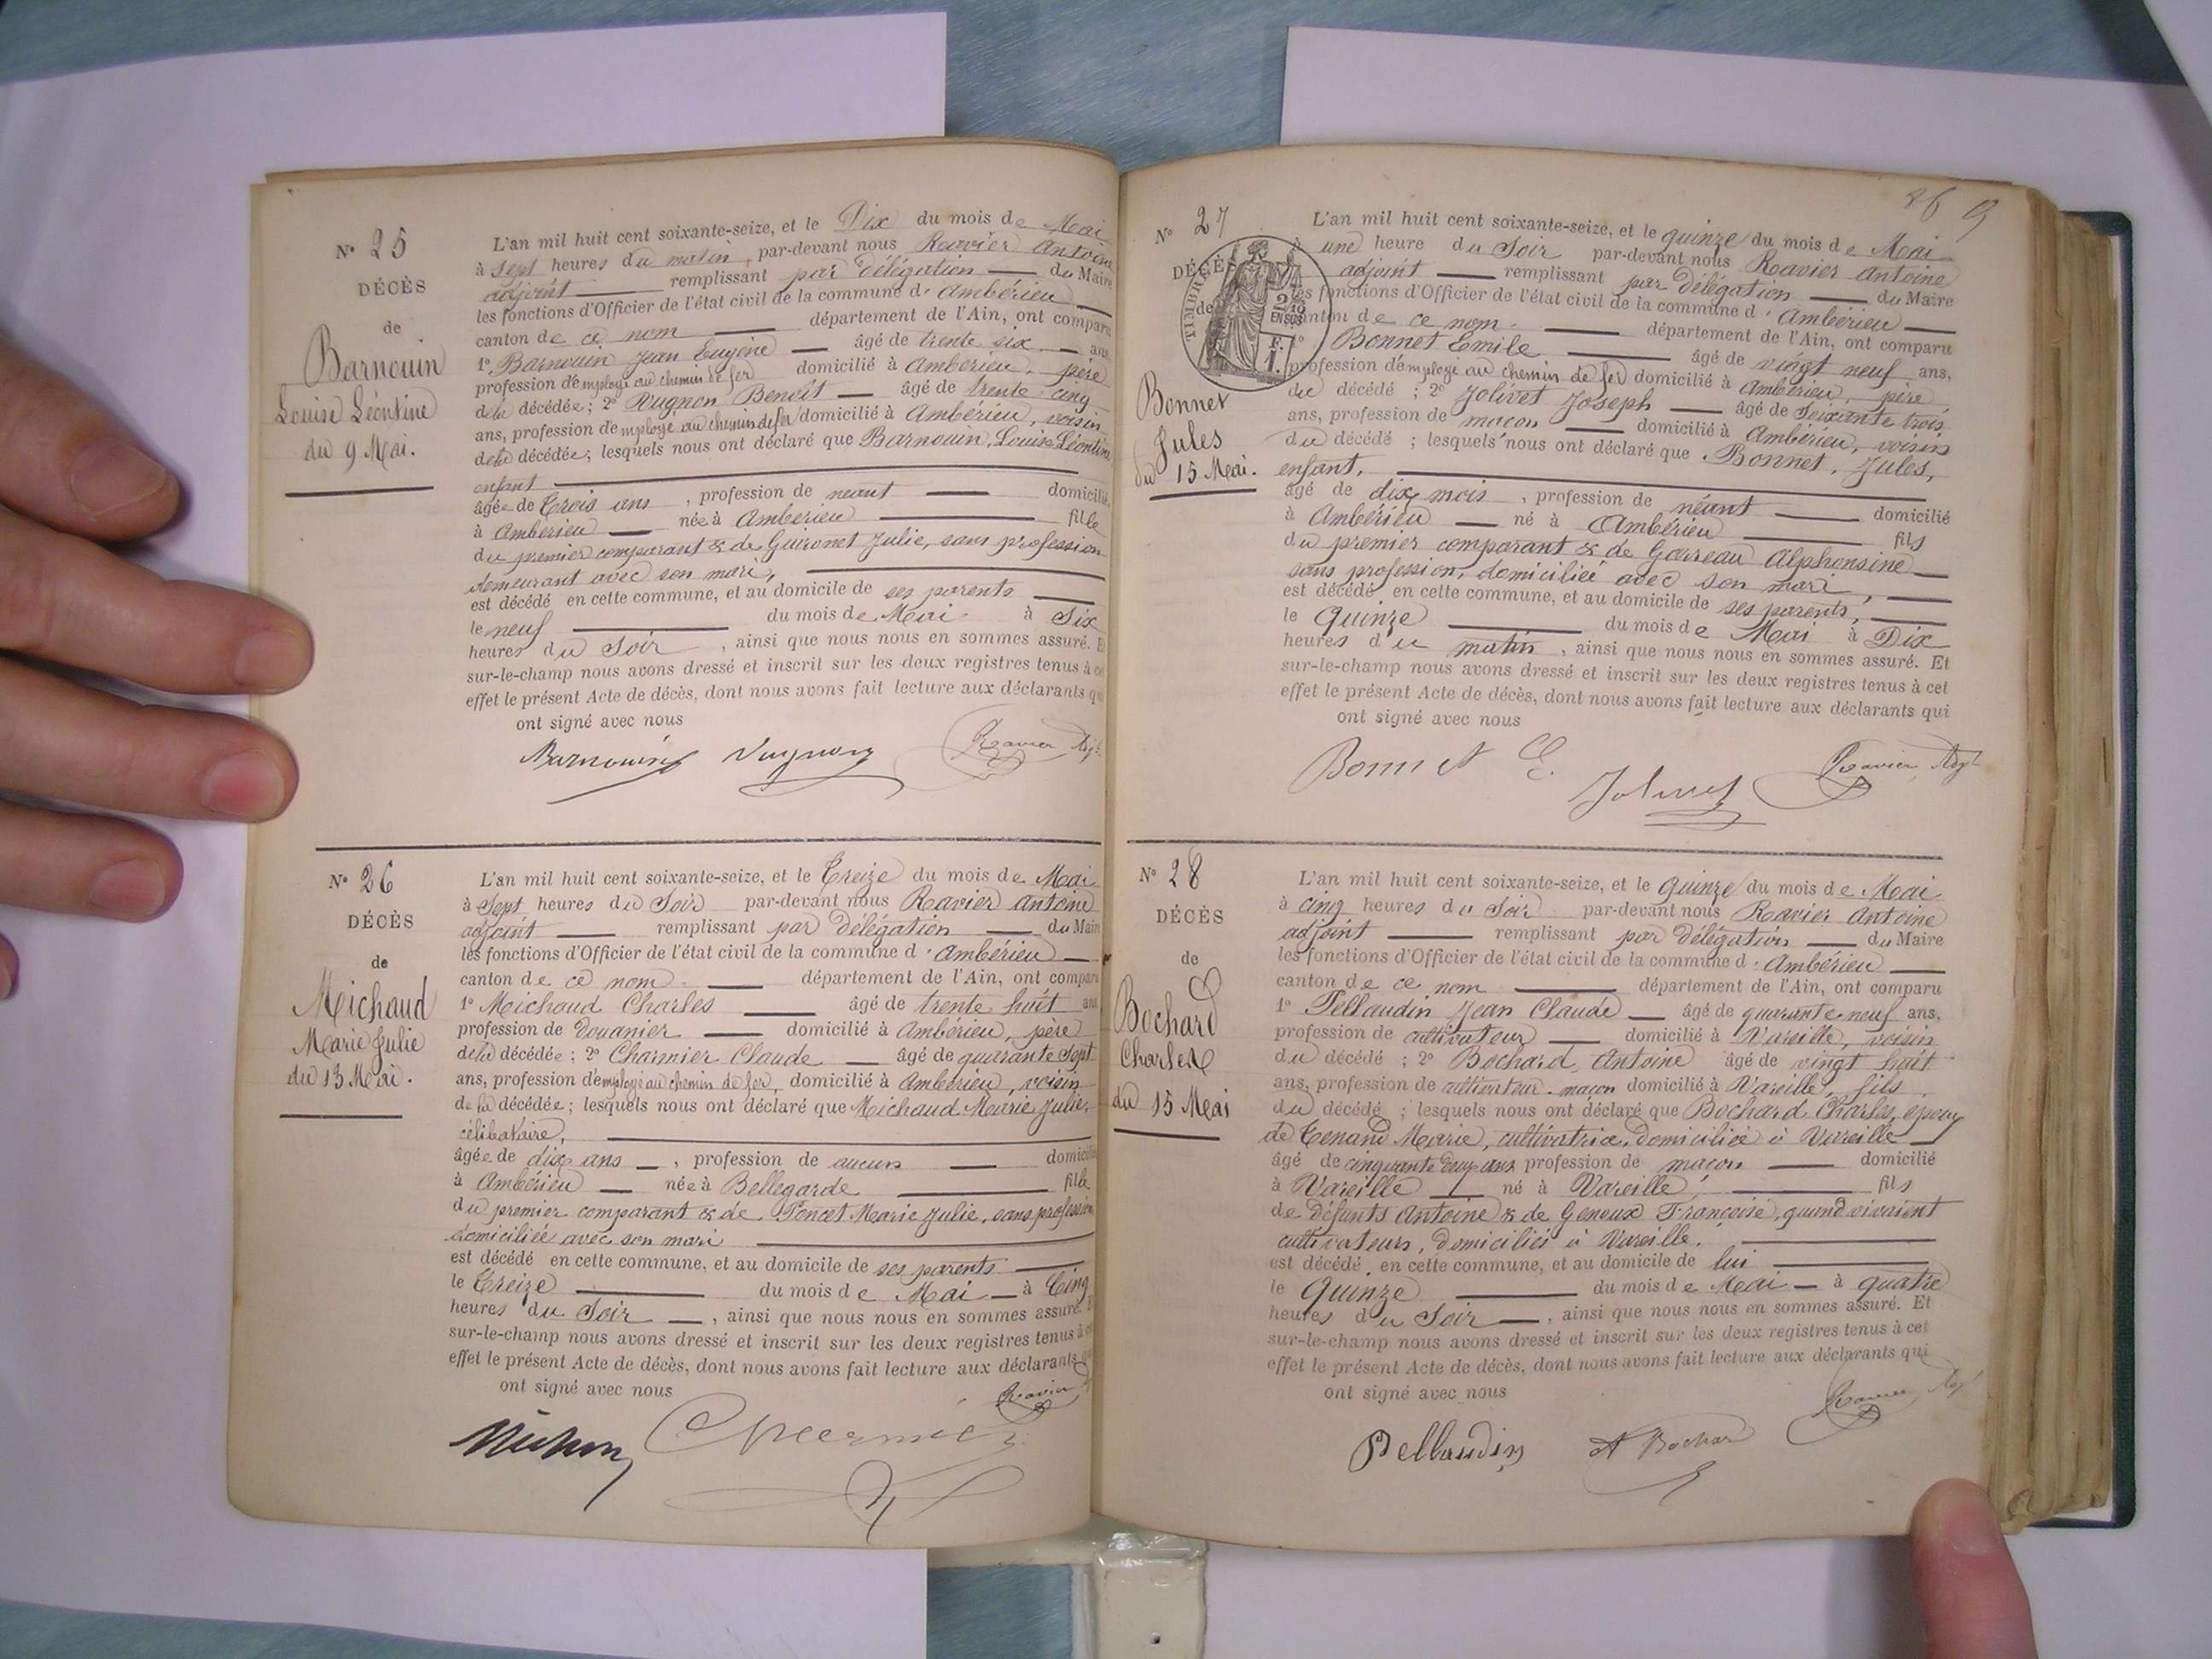 N° 25
DÉCÈS
de
Barnouin
Louise Léontine
du 9 Mai.
L'an mil huit cent soixante-seize, et le Dix du mois de Mai
à sept heures du matin, par-devant nous Ravier Antoine
adjoint remplissant par délégation du Maire
les fonctions d'Officier de l'état civil de la commune d'Ambérieu
canton de ce nom département de l'Ain, ont comparu
1° Barnouin Jean Eugène âgé de trente six ans,
profession d'employé au chemin de fer domicilié à Ambérieu, père
de la décédée; 2° Vugnon Benoît âgé de trente cinq
ans, profession d'employé au chemin de fer domicilié à Ambérieu, voisin
de la décédée; lesquels nous ont déclaré que Barnouin, Louise Léontine
enfant
âgée de trois ans, profession de néant domicilié
à Ambérieu née à Ambérieu fille
du premier comparant & de Guironet Julie, sans profession
demeurant avec son mari,
est décédé en cette commune, et au domicile de ses parents
le neuf du mois de Mai à Six
heures du Soir, ainsi que nous nous en sommes assuré. E
sur-le-champ nous avons dressé et inscrit sur les deux registres tenus à ce
effet le présent Acte de décès, dont nous avons fait lecture aux déclarants qu
ont signé avec nous
Barnouin Vugnon Ravier Adjt
N° 26
DÉCÈS
de
Michaud
Marie Julie
du 13 Mai.
L'an mil huit cent soixante-seize, et le Treize du mois de Mai
à Sept heures du Soir par-devant nous Ravier Antoine
adjoint remplissant par délégation du Maire
les fonctions d'Officier de l'état civil de la commune d'Ambérieu
canton de ce nom département de l'Ain, ont comparu
1° Michaud Charles âgé de trente huit ans
profession de Douanier domicilié à Ambérieu, père
de la décédée; 2° Charmier Claude âgé de quarante sept
ans, profession d'employé au chemin de fer, domicilié à Ambérieu, voisin
de la décédée; lesquels nous ont déclaré que Michaud Marie Julie,
célibataire,
âgée de dix ans, profession de aucun domicilié
à Ambérieu née à Bellegarde fille
du premier comparant & de Poncet Marie Julie, sans profession
domiciliée avec son mari
est décédé en cette commune, et au domicile de ses parents
le Treize du mois de Mai à Cinq
heures du Soir, ainsi que nous nous en sommes assuré. E
sur-le-champ nous avons dressé et inscrit sur les deux registres tenus à ce
effet le présent Acte de décès, dont nous avons fait lecture aux déclarants qu
ont signé avec nous
Ravier
Charmier
26 9
N° 27
DÉCÈS
de
TIMBRE
EN SUS
Bonnet
Jules
du 15 Mai.
L'an mil huit cent soixante-seize, et le quinze du mois de Mai
à une heure du Soir par-devant nous Ravier Antoine
adjoint remplissant par délégation du Maire
les fonctions d'Officier de l'état civil de la commune d'Ambérieu
canton de ce nom. département de l'Ain, ont comparu
1° Bonnet Emile âgé de vingt neuf ans,
profession d'employé au chemin de fer domicilié à Ambérieu, père
du décédé; 2° Jolivet Joseph âgé de Soixante trois
ans, profession de maçon domicilié à Ambérieu, voisin
du décédé; lesquels nous ont déclaré que Bonnet, Jules,
enfant,
âgé de dix mois, profession de néant domicilié
à Ambérieu né à Ambérieu fils
du premier comparant & de Garreau Alphonsine
sans profession, domiciliée avec son mari,
est décédé en cette commune, et au domicile de ses parents,
le Quinze du mois de Mai à Dix
heures du matin, ainsi que nous nous en sommes assuré. Et
sur-le-champ nous avons dressé et inscrit sur les deux registres tenus à cet
effet le présent Acte de décès, dont nous avons fait lecture aux déclarants qui
ont signé avec nous
Bonnet E. Jolivet Ravier Adjt
N° 28
DÉCÈS
de
Bochard
Charles
du 15 Mai
L'an mil huit cent soixante-seize, et le Quinze du mois de Mai
à cinq heures du Soir par-devant nous Ravier Antoine
adjoint remplissant par délégation du Maire
les fonctions d'Officier de l'état civil de la commune d'Ambérieu
canton de ce nom département de l'Ain, ont comparu
1° Pellaudin Jean Claude âgé de quarante neuf ans,
profession de cultivateur domicilié à Vareille, voisin
du décédé; 2° Bochard Antoine âgé de vingt huit
ans, profession de cultivateur-maçon domicilié à Vareille, fils
du décédé; lesquels nous ont déclaré que Bochard Charles, époux
de Tenand Marie, cultivatrice, domiciliée à Vareille
âgé de cinquante deux ans profession de maçon domicilié
à Vareille né à Vareille, fils
de défunts Antoine & de Genoux Françoise, quand vivaient
cultivateurs, domiciliés à Vareille.
est décédé en cette commune, et au domicile de lui
le Quinze du mois de Mai à quatre
heures du Soir, ainsi que nous nous en sommes assuré. Et
sur-le-champ nous avons dressé et inscrit sur les deux registres tenus à cet
effet le présent Acte de décès, dont nous avons fait lecture aux déclarants qui
ont signé avec nous
Pellaudin A Bochard Ravier Adjt